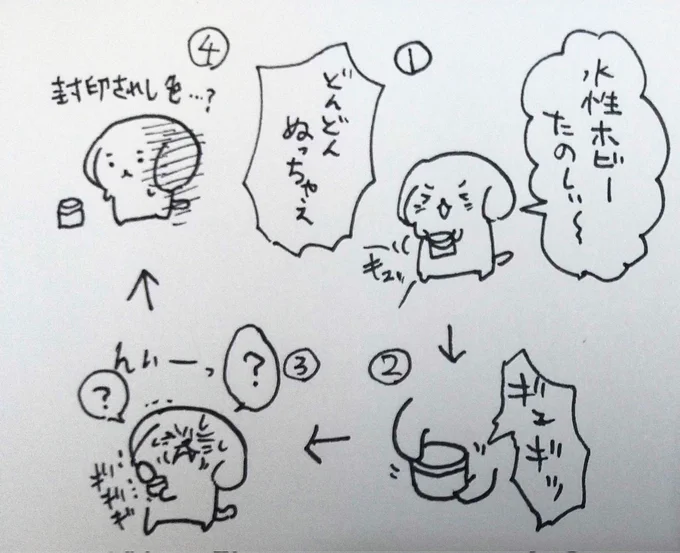 ①
水性ホビー
たのしい〜
どんどん
ぬっちゃえ
キュッ
②
ギュギッ
③
んぃーっ
?
?
…
ギギギ
④
封印されし色…?